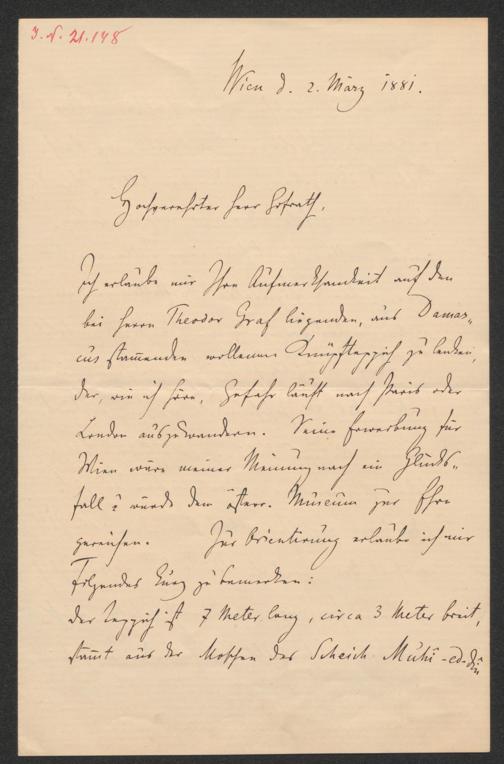 J. N. 21.148
Wien d. 2. März 1881.
Hochverehrter Herr Hofrath,
Ich erlaube mir Ihre Aufmerksamkeit auf den
bei Herrn Theodor Graf liegenden, aus Damas„
cus stammenden wollenen Knüpfteppich zu lenken,
der, wie ich höre, Gefahr läuft nach Paris oder
London auszuwandern. Seine Erwerbung für
Wien wäre meiner Meinung nach ein Glücks„
fall & würde dem österr. Museum zur Ehre
gereichen. Zur Orientirung erlaube ich mir
Folgendes kurz zu bemerken:
Der Teppich ist 7 Meter lang, circa 3 Meter breit,
stammt aus der Moschee des Scheich Muhî-ed-dîn